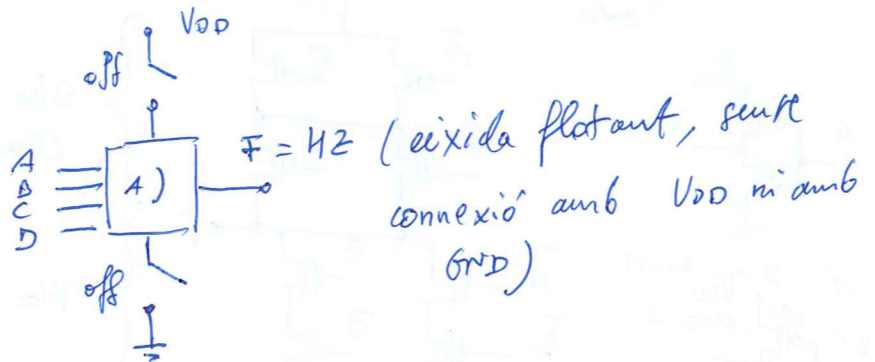 VDD
off
A
B
C
D
A)
F = HZ (eixida flotant, sense
connexió amb VDD ni amb
GND)
off